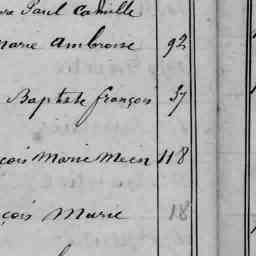 Paul Camille
Marie Ambroise 92
Baptiste françois 37
çois Marie 118
çois Marie 18